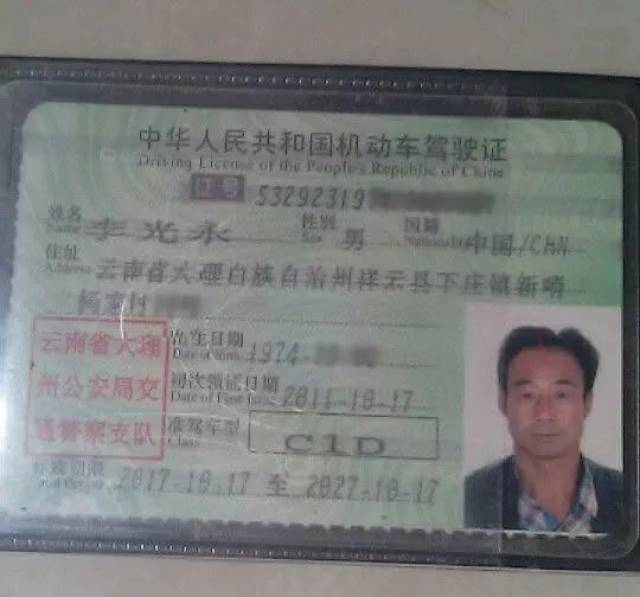 中华人民共和国机动车驾驶证
Driving License of the People's Republic of China
证号 53292319
姓名 李光永 性别 男 国籍 中国/CHN
Name Sex Nationality
住址 云南省大理白族自治州祥云县下庄镇新晴
Address
云南省大理
州公安局交
通警察支队
出生日期 1974
Date of Birth
初次领证日期 2011-10-17
Date of First Issue
准驾车型 C1D
Class
有效期限 2017-10-17 至 2027-10-17